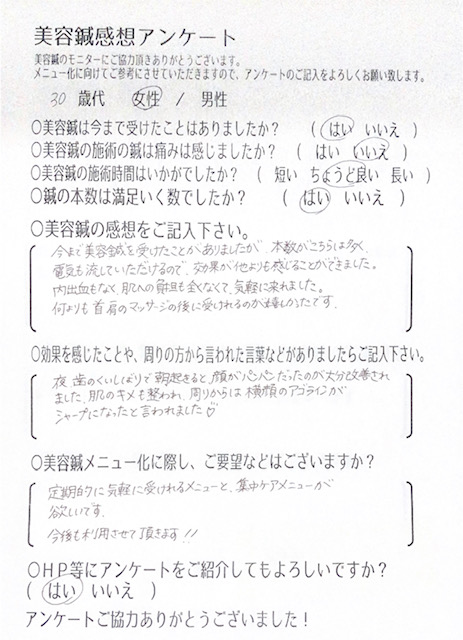 美容鍼感想アンケート
美容鍼のモニターにご協力頂きありがとうございます。
メニュー化に向けてご参考にさせていただきますので、アンケートのご記入をよろしくお願い致します。
30 歳代 女性 / 男性
○美容鍼は今まで受けたことはありましたか? ( はい いいえ )
○美容鍼の施術の鍼は痛みは感じましたか? ( はい いいえ )
○美容鍼の施術時間はいかがでしたか? ( 短い ちょうど良い 長い )
○鍼の本数は満足いく数でしたか? ( はい いいえ )
○美容鍼の感想をご記入下さい。
今まで美容鍼を受けたことがありましたが、本数がこちらは多く、
電気も流していただけるので、効果が他よりも感じることができました。
内出血もなく、肌への負担も全くなくて、気軽に来れました。
何よりも首肩のマッサージの後に受けれるのが嬉しかったです。
○効果を感じたことや、周りの方から言われた言葉などがありましたらご記入下さい。
夜 歯のくいしばりで朝起きると、顔がパンパンだったのが大分改善され
ました。肌のキメも整われ、周りからは横顔のアゴラインが
シャープになったと言われました♡
○美容鍼メニュー化に際し、ご要望などはございますか?
定期的に気軽に受けれるメニューと、集中ケアメニューが
欲しいです。
今後も利用させて頂きます!!
○HP等にアンケートをご紹介してもよろしいですか?
( はい いいえ )
アンケートご協力ありがとうございました!